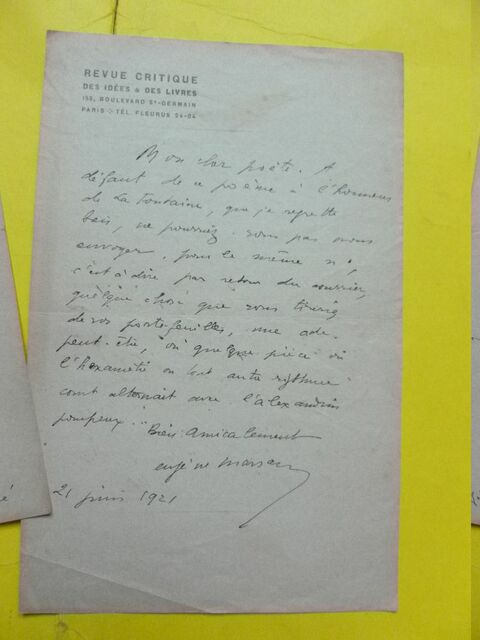 REVUE CRITIQUE
DES IDÉES & DES LIVRES
155, BOULEVARD St-GERMAIN
PARIS - TÉL. FLEURUS 24-04
Mon cher poète. A
défaut de ce poème à l'honneur
de La Fontaine, que je regrette
bien, ne pourriez-vous pas nous
envoyer, pour le même n°,
c'est à dire par retour du courrier,
quelque chose que vous tiriez
de vos portefeuilles, une ode
peut-être, où quelque pièce où
l'hexamètre ou tout autre rythme
court alternait avec l'alexandrin
pompeux.
Bien amicalement
eugène marsan
21 juin 1921